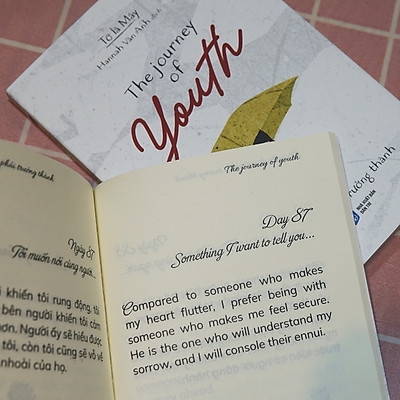 Tớ là Mây
Hannah Vân Anh dịch
The journey
of
Youth
trưởng thành
NHÀ XUẤT BẢN
DÂN TRÍ
phải trưởng thành
Ngày 87
Tôi muốn nói cùng người...
i khiến tôi rung động, tôi
bên người khiến tôi cảm
hơn. Người ấy sẽ hiểu được
tôi, còn tôi cũng sẽ vỗ về
nhoài của họ.
The journey of youth
Day 87
Something I want to tell you...
Compared to someone who makes
my heart flutter, I prefer being with
someone who makes me feel secure.
He is the one who will understand my
sorrow, and I will console their ennui.